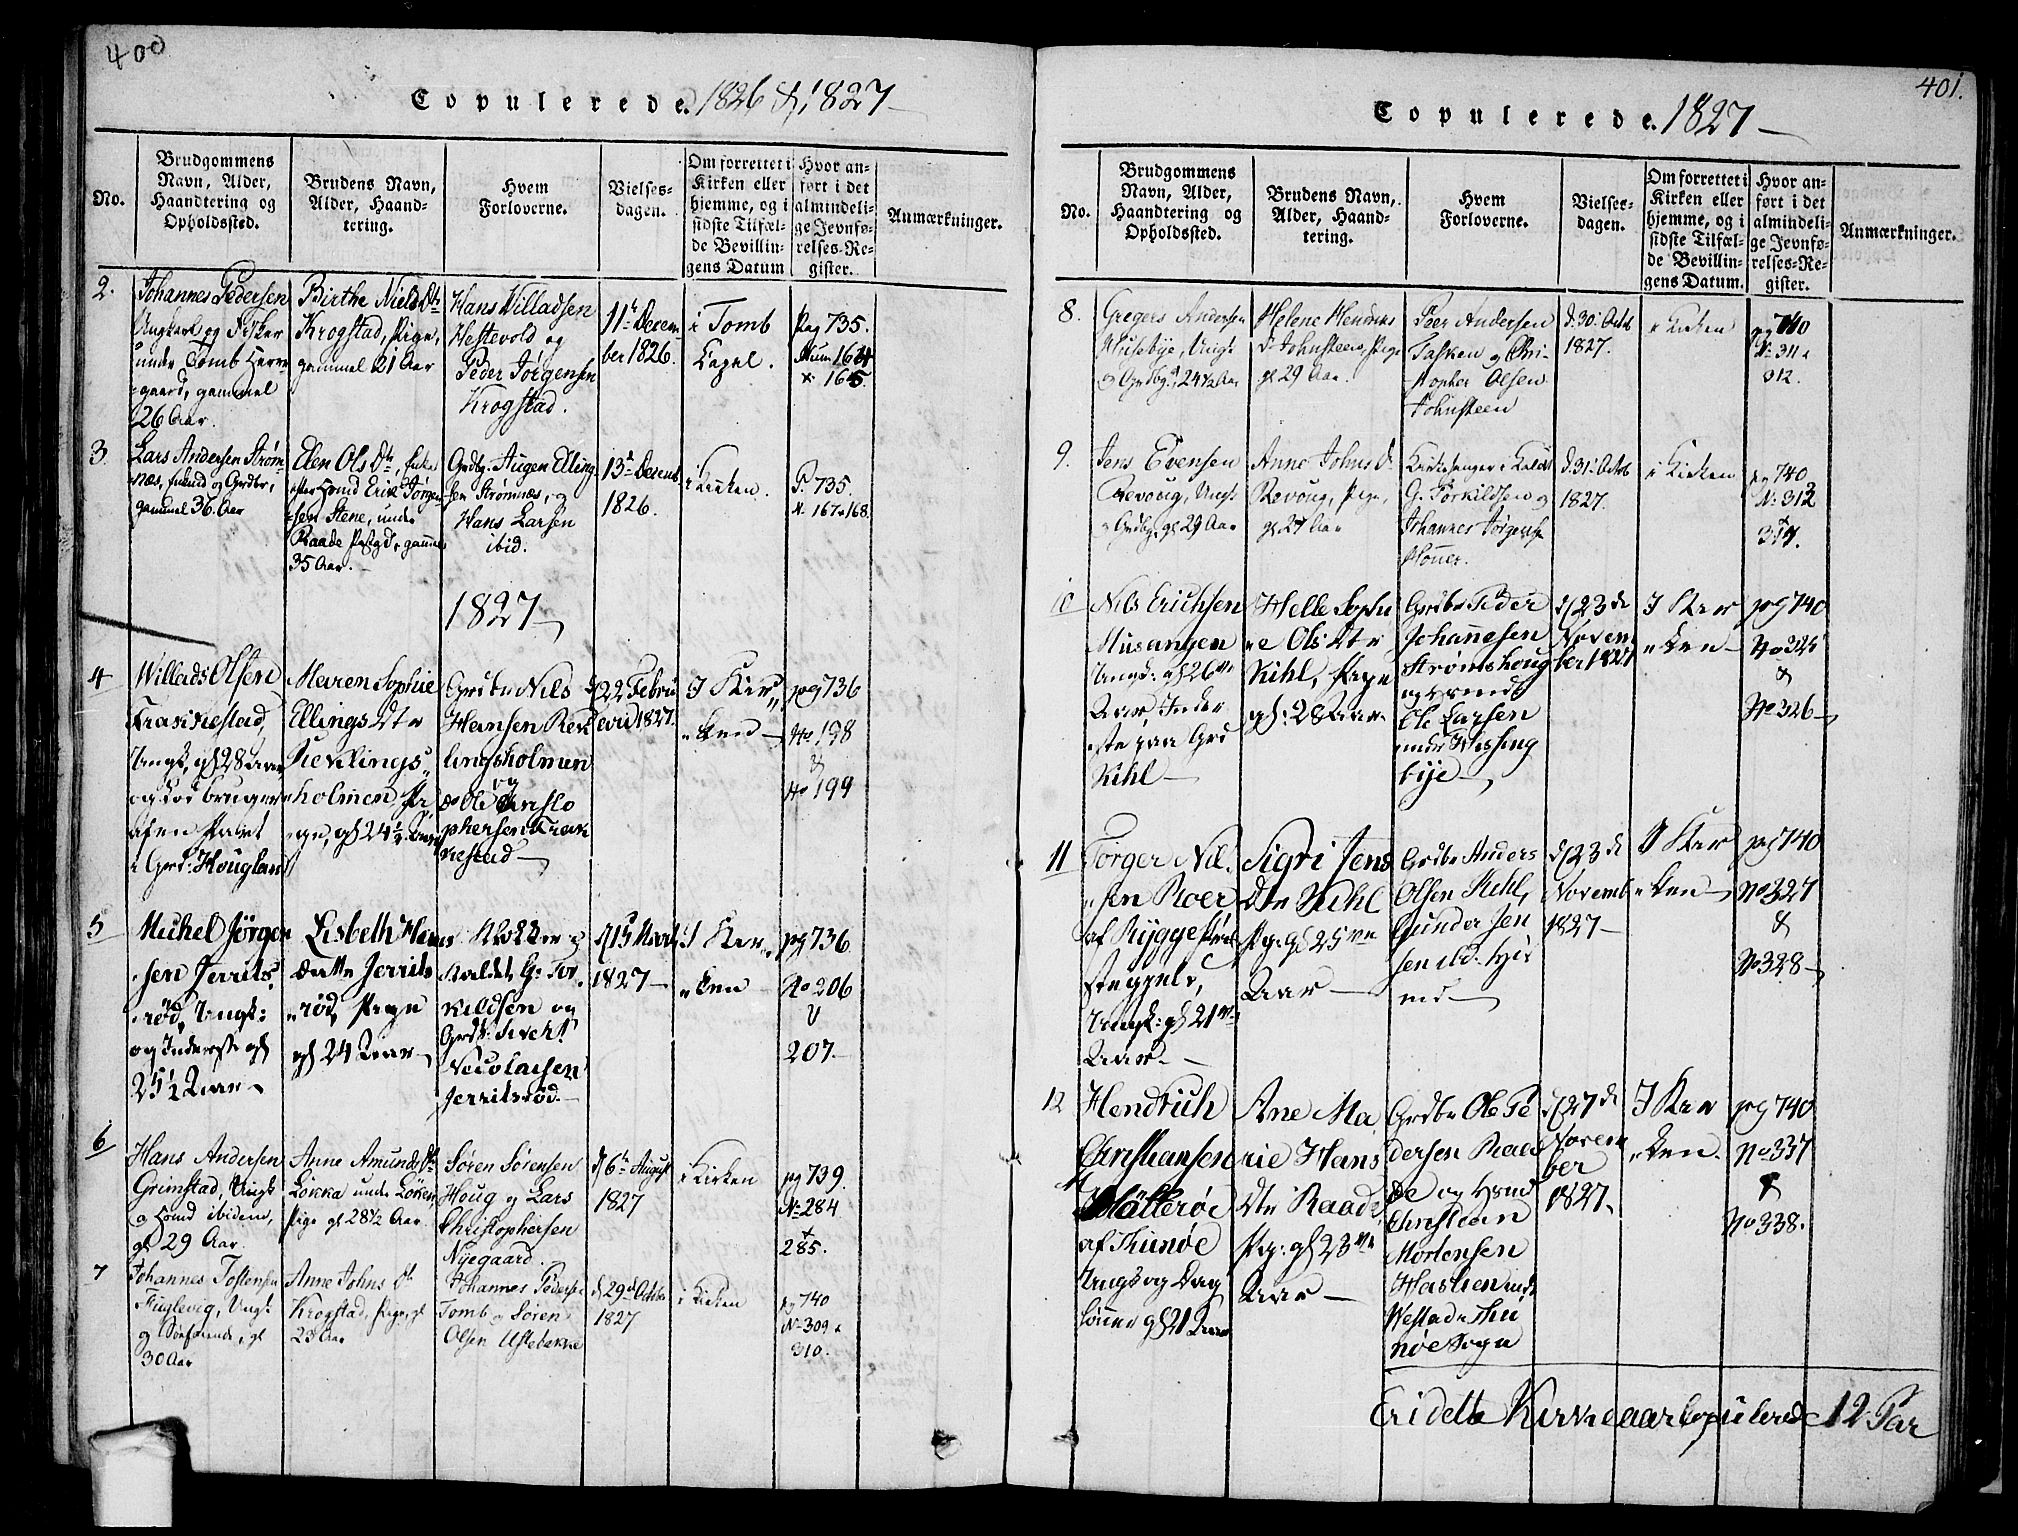 400
Copulerede. 1826 & 1827
No.
Brudgommens
Navn, Alder,
Haandtering og
Opholdssted.
Brudens Navn,
Alder, Haand-
tering.
Hvem
Forloverne.
Vielses-
dagen.
Om forrettet i
Kirken eller
hjemme, og i
sidste Tilfæl-
de Bevillin-
gens Datum
Hvor an-
ført i det
almindeli-
ge Jevnfø-
relses-Re-
gister.
Anmærkninger.
2.
Johannes Pedersen
Ungkarl og Fisker
under Tomb Herre
gaard, gammel
26 Aar.
Birthe Niels Dtr
Krogstad, Pige,
gammel 21 Aar
Hans Villadsen
Hestevold og
Peder Jørgensen
Krogstad.
11te Decem
ber 1826.
i Tomb
Capel.
Pag 735.
Num 164
165.
3
Lars Andersen Strøm-
næs, og Grdbr,
gammel 36 Aar
Elen Ols Dtr, Enke
efter Erik Jørgen-
sen Stene, under
Raade Pstgd, gammel
35 Aar.
Grdbr. Augen Elling-
sen Strømnæs, og
Hans Larsen
ibid.
13de Decemb
1826.
i Kirken.
P. 735.
N. 167 & 168.
1827
4
Willads Olsen
Krakkestad,
Ungk, gl 28 Aar
og bruger
af en Part
i Grd. Houglan
Maren Sophie
Ellings Dtr
Reklings
holmen Pi
ge, gl 24½ Aar
Grdbr Nils
Hansen Rek
lingsholmen
og
Ole Christo
phersen Krak
kestad
d 22 Febru
arii 1827.
I Kir
ken
pg 736
No 198
&
No 199
5
Michel Jørgen
sen Jerrils
rød, Ungk:
og Inderste gl
25½ Aar
Lisbeth Hans
datter Jerrils
rød, Pige
gl 24 Aar
Klokker
Kaldet G: Tor
kildsen og
Grdbr: Sivert
Nicolaisen
Jerrilsrød.
1827
I Kir
ken
pg 736
No 206
&
207.
6
Hans Andersen
Grimstad, Ungk
ibidem,
gl 29 Aar.
Anne Amunds Dtr
Løkka under Løken,
Pige gl 28½ Aar.
Søren Sørensen
Houg og Lars
Christophersen
Nyegaard.
d 6te August
1827
i Kirken
pg 739.
No 284
&
285.
7
Johannes Tostensen
Fuglevig, Ungk
og Søefarende, gl
30 Aar
Anne Johns Dtr
Krogstad, Pige, gl
23 Aar
Johannes Pedersen
Tomb og Søren
Olsen Uslebakke
d 29de Octobr
1827
i Kirken
pg 740
No 309 &
310.
401.
Copulerede. 1827
No.
Brudgommens
Navn, Alder,
Haandtering og
Opholdssted.
Brudens Navn,
Alder, Haand-
tering.
Hvem
Forloverne.
Vielses-
dagen.
Om forrettet i
Kirken eller
hjemme, og i
sidste Tilfæl-
de Bevillin-
gens Datum.
Hvor an-
ført i det
almindeli-
ge Jevnfø-
relses-Re-
gister.
Anmærkninger.
8.
Gregers Andersen
Husebye, Ungk
og Grdbg, 24½ Aar
Helene Henriks
dtr Johnsteen, Pige
gl 29 Aar.
Peer Andersen
Tasken og Chri-
stopher Olsen
Johnsteen
d. 30 Octob
1827.
i Kirken
pg 740
No 311 &
312.
9.
Jens Evensen
Revoug, Ungk
og Grdbg, gl 29 Aar
Anne Johns D.
Revoug, Pige,
gl 27 Aar
Kirkesanger i Kaldet
G. Torkildsen og
Johannes Jørgensen
d. 31 Octob
1827.
i Kirken
pg 740
No 313
&
314.
10
Nils Erichsen
Musangen
Ungk: gl 26
Aar, Inder
ste paa Grd
Kihl
Helle Sophi
e Ols Dtr
Kihl, Pige
gl: 28 Aar
Grdbr Peder
Johannesen
Strømshoug
og
Ole Larsen
under Wissing
bye
d 23de
Novem
ber 1827
I Kir
ken
pg 740
No 325
&
No 326
11
Torger Nil
sen Roer
af Rygge
Ungk: gl 21
Aar.
Sigri Jens
Dtr Kihl
Pig: gl 25
Aar
Grdbr Anders
Olsen Kihl,
Gunder Jen
sen
d 23de
Novemb
1827
I Kir
ken
pag 740
No 327
&
No 328
12
Hendrich
Christiansen
af Thunøe
Ungk og Dag
lønner gl 21 Aar
Ane Ma
rie Hans
Dtr Raade
Pig: gl 23
Aar
Grdbr Ole Pe
dersen Raa
de og
Christian
Mortensen
under
Thu
nøe Sogn
d 27de
Novem
ber
1827.
I Kir
ken.
pg 740
No 337
&
No 338.
Er i dette Kirkeaar Copulerede 12 Par